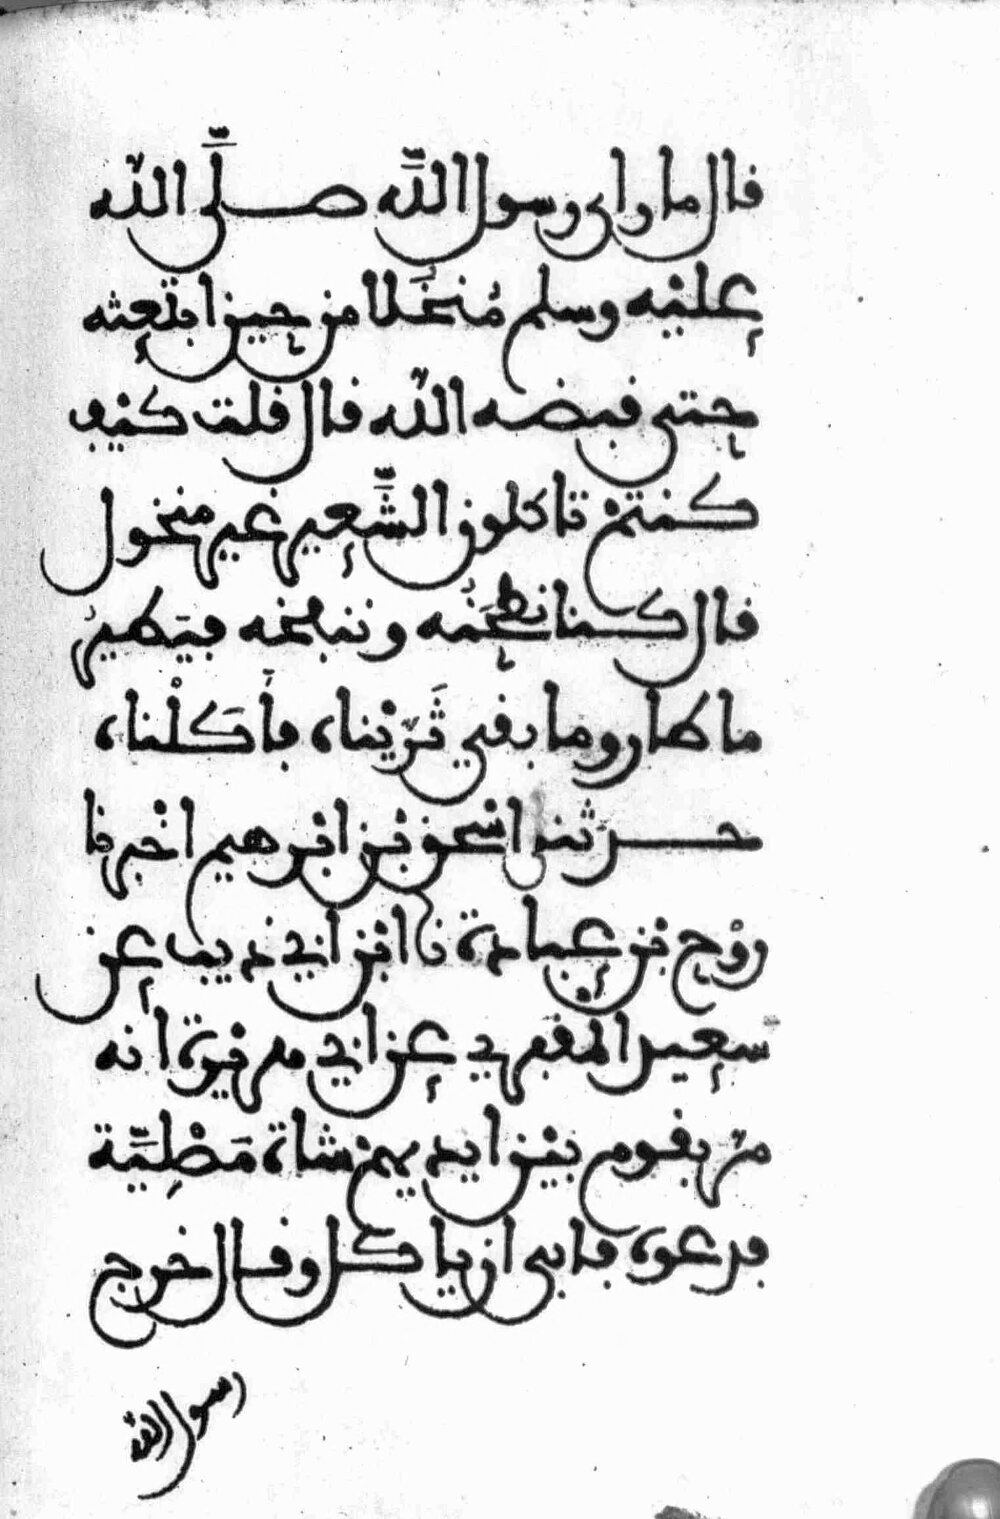 قال ما رأى رسول الله صَلَّى الله
عليْه وسلم مُنخَلا من حين ابتعثه
حتى قبضه الله قال قلت كيْف
كنتمْ تاكلون الشَّعير غير منخول
قال كنا نطحَنُه وننفخه فيَطيرُ
ما طار وما بقي ثَرَّيْنا، فأَكَلْنا،
حدثنا اسْحق بْن ابْرهيم اخْبرنا
روْح بْن عبادة نا ابْن ابي ذيب عن
سعيد المقبري عن ابي هريْرة انه
مرّ بقوم بيْن ايديهمْ شاة مَصْلِيَّة
فدعوه فابى ان ياكل وقال خرج
رسول الله